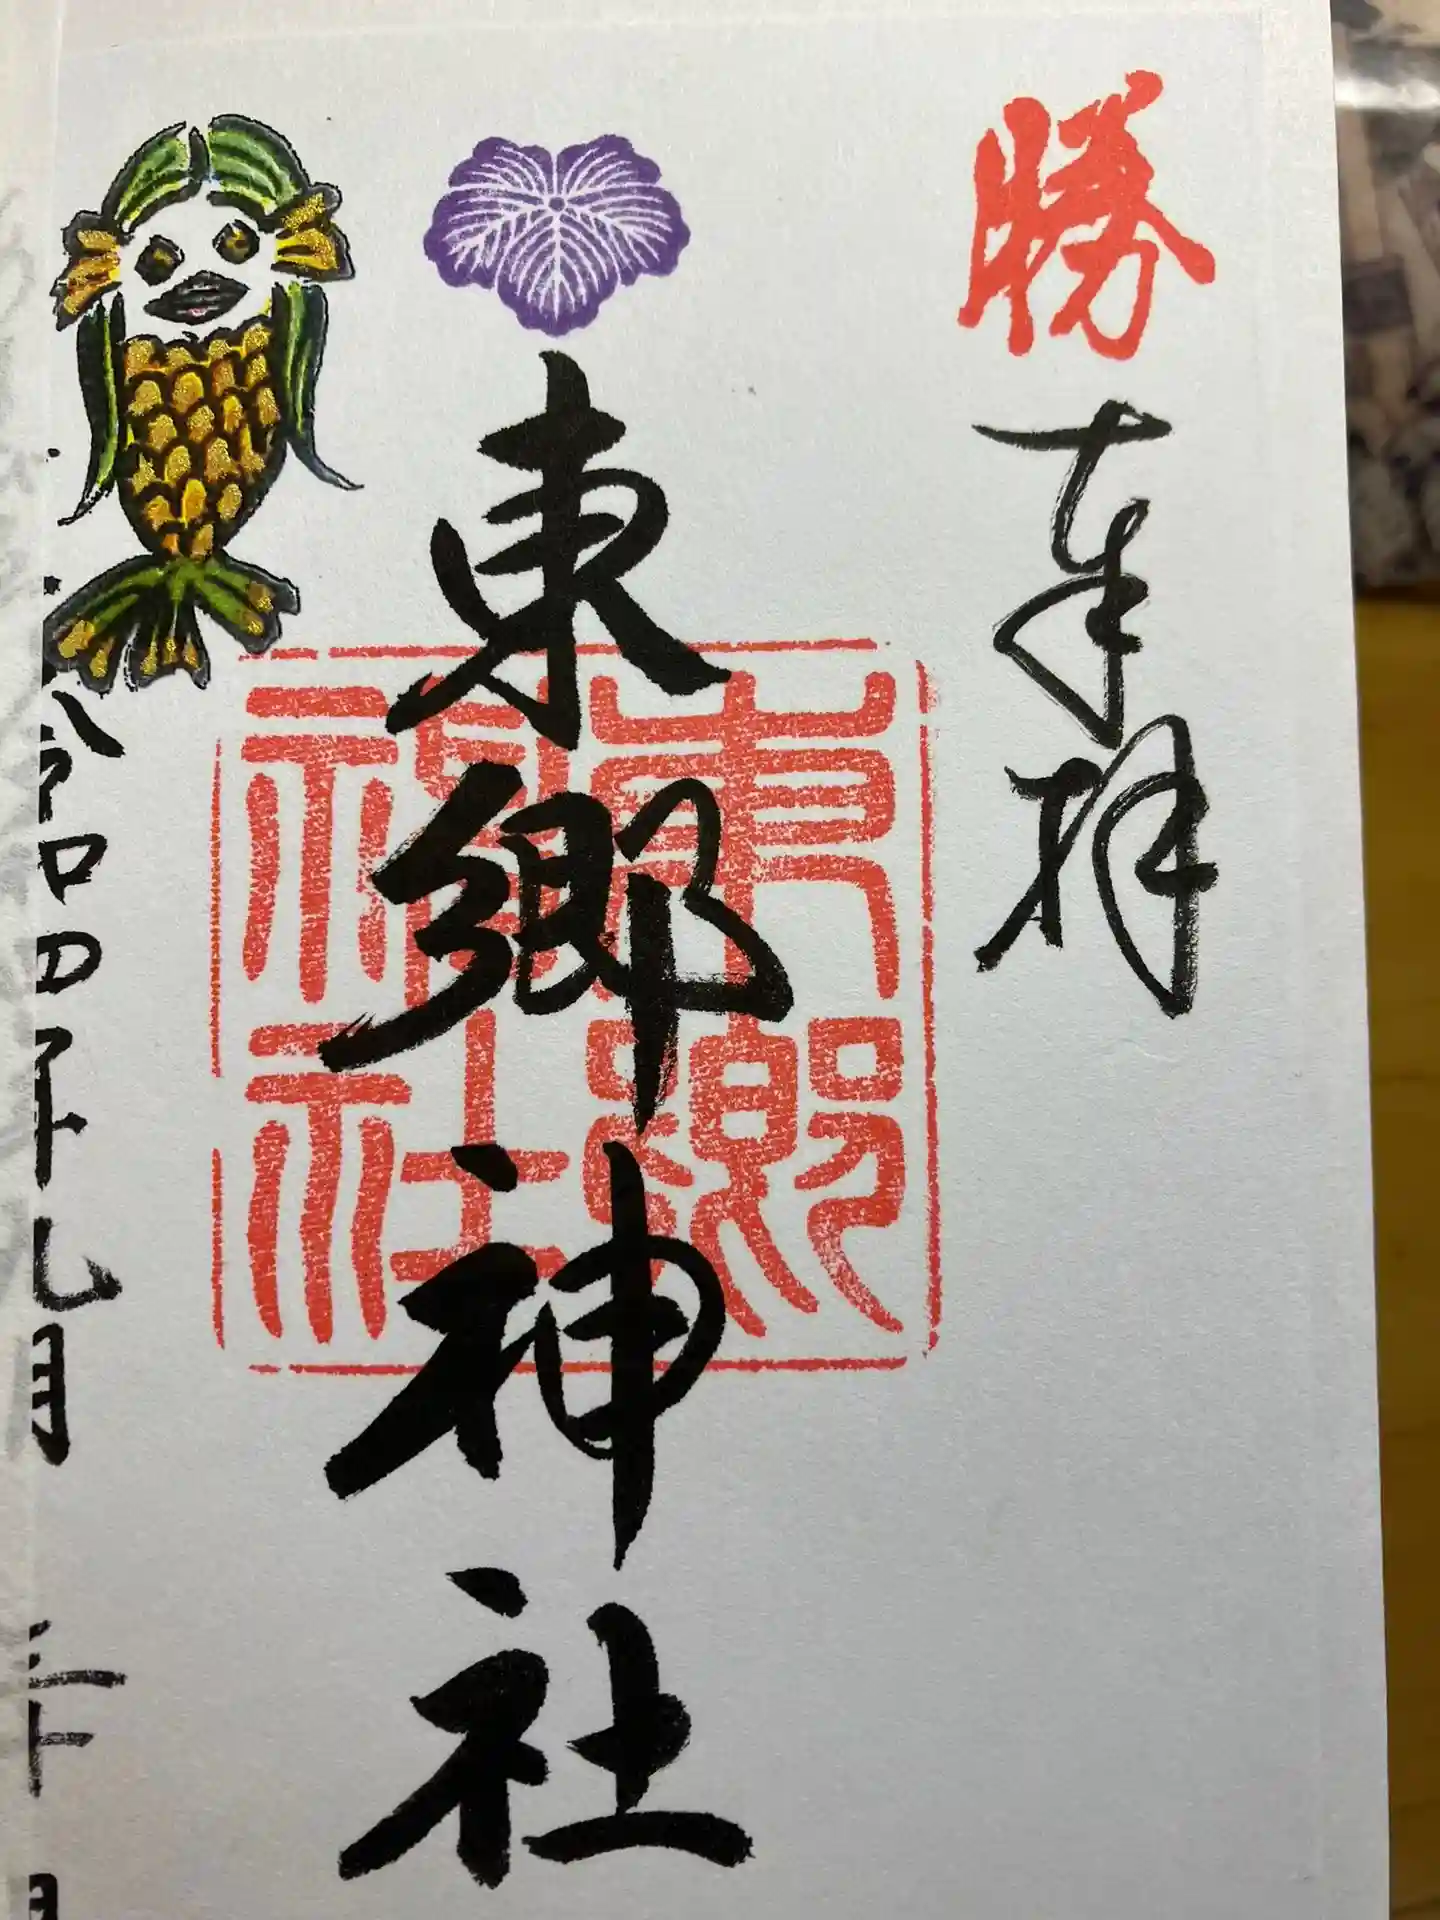 勝
奉拝
東郷神社
東郷神社
令和四年九月